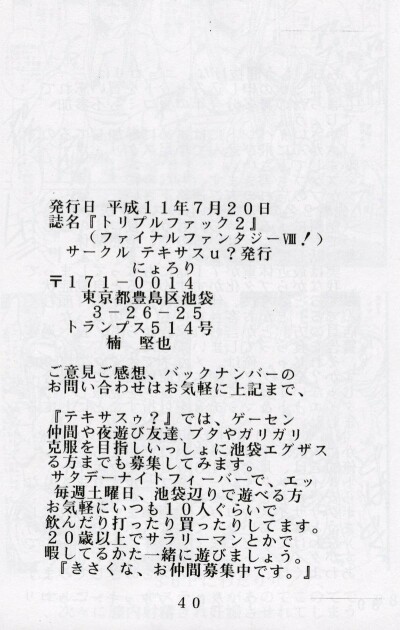 発行日 平成11年7月20日
誌名『トリプルファック2』
（ファイナルファンタジーⅧ！）
サークル テキサスu？発行
にょろり
〒171－0014
東京都豊島区池袋
3－26－25
トランプス514号
楠　堅也
ご意見ご感想、バックナンバーの
お問い合わせはお気軽に上記まで、
『テキサスゥ？』では、ゲーセン
仲間や夜遊び友達、ブタやガリガリ
克服を目指しいっしょに池袋エグザス
る方までも募集してみます。
サタデーナイトフィーバーで、エッ
毎週土曜日、池袋辺りで遊べる方
お気軽にいつも10人ぐらいで
飲んだり打ったり買ったりしてます。
20歳以上でサラリーマンとかで
暇してるかた一緒に遊びましょう。
『きさくな、お仲間募集中です。』
40